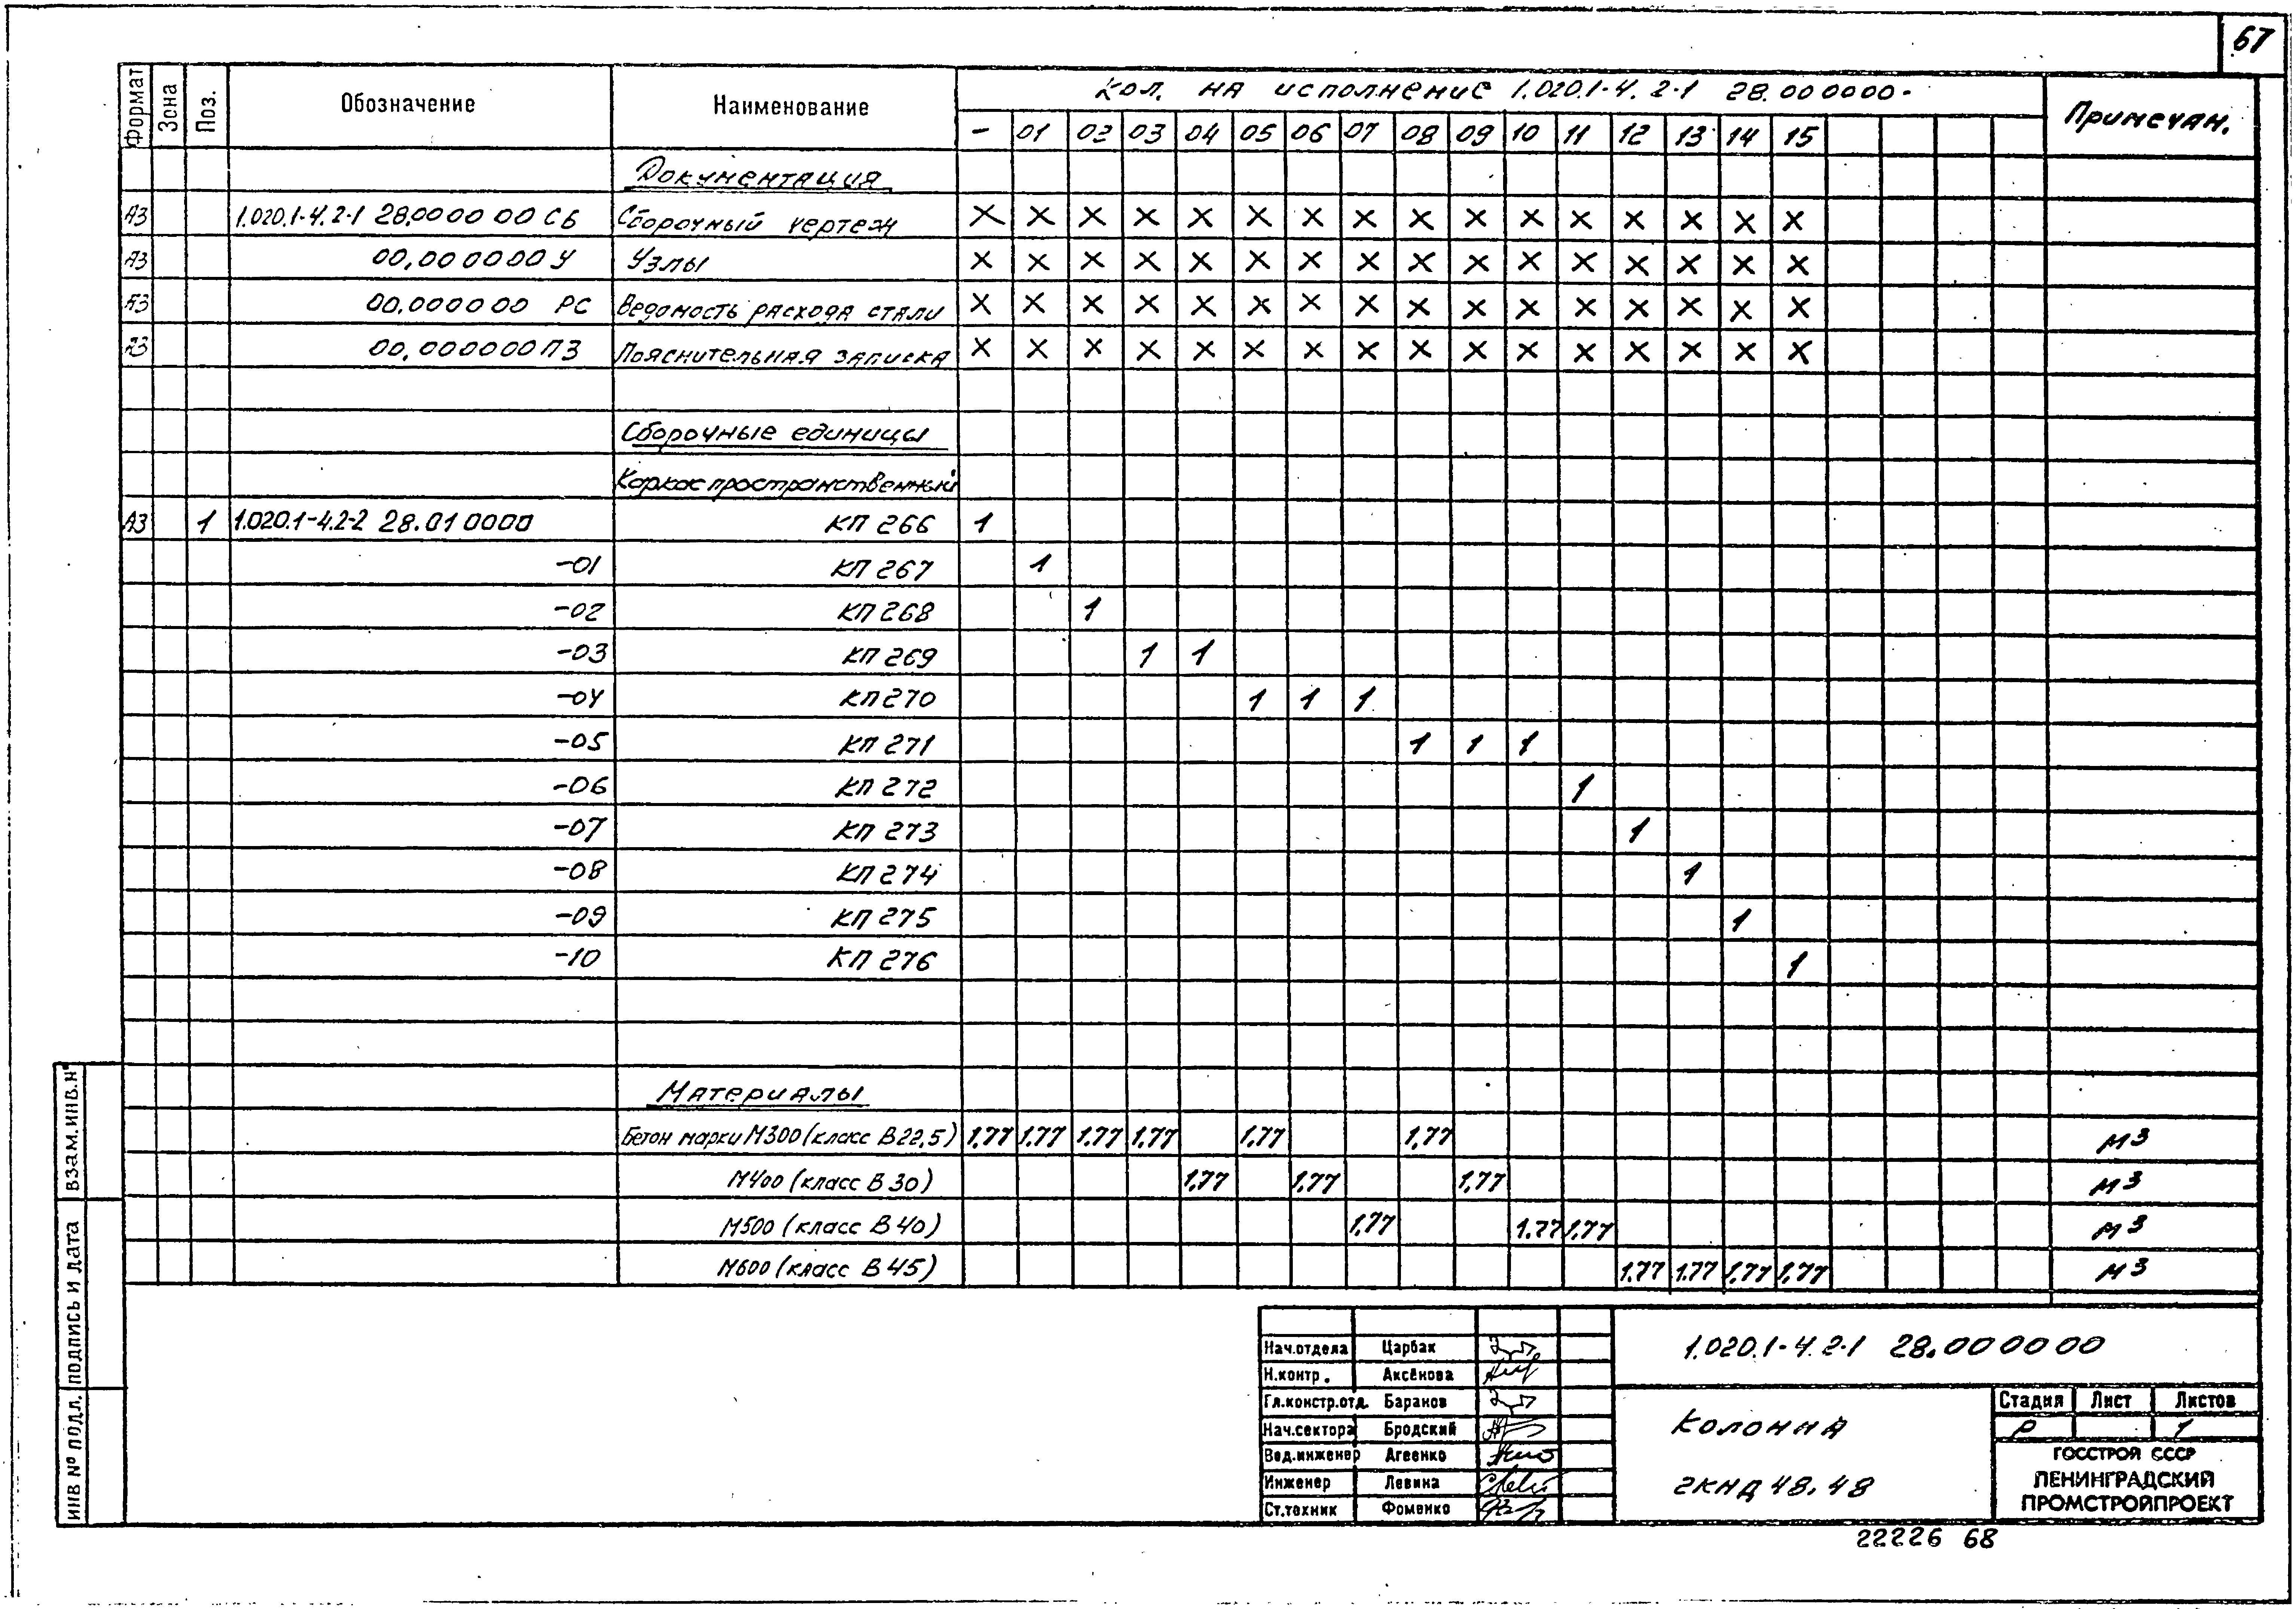 67
Формат Зона Поз. Обозначение Наименование Кол. на исполнение 1.020.1-4.2-1 28.000000- Примечан.
- 01 02 03 04 05 06 07 08 09 10 11 12 13 14 15
Документация
А3 1.020.1-4.2-1 28.000000 СБ Сборочный чертеж X X X X X X X X X X X X X X X X
А3 00.000000 У Узлы X X X X X X X X X X X X X X X X
А3 00.000000 РС Ведомость расхода стали X X X X X X X X X X X X X X X X
А3 00.000000 ПЗ Пояснительная записка X X X X X X X X X X X X X X X X
Сборочные единицы
Каркас пространственный
А3 1 1.020.1-4.2-2 28.010000 КП 266 1
-01 КП 267 1
-02 КП 268 1
-03 КП 269 1 1
-04 КП 270 1 1 1
-05 КП 271 1 1 1
-06 КП 272 1
-07 КП 273 1
-08 КП 274 1
-09 КП 275 1
-10 КП 276 1
Материалы
Бетон марки М300 (класс В22,5) 1,77 1,77 1,77 1,77 1,77 1,77 м3
М400 (класс В30) 1,77 1,77 1,77 м3
М500 (класс В40) 1,77 1,77 1,77 м3
М600 (класс В45) 1,77 1,77 1,77 1,77 м3
ВЗАМ.ИНВ.№
ПОДПИСЬ И ДАТА
ИНВ № ПОДЛ.
Нач.отдела Царбак
Н.контр. Аксёнова
Гл.констр.отд. Баранов
Нач.сектора Бродский
Вед.инженер Агеенко
Инженер Левина
Ст.техник Фоменко
1.020.1-4.2-1 28.000000
Колонна
2КНД 48.48
Стадия Лист Листов
Р 1
ГОССТРОЙ СССР
ЛЕНИНГРАДСКИЙ
ПРОМСТРОЙПРОЕКТ
22226 68